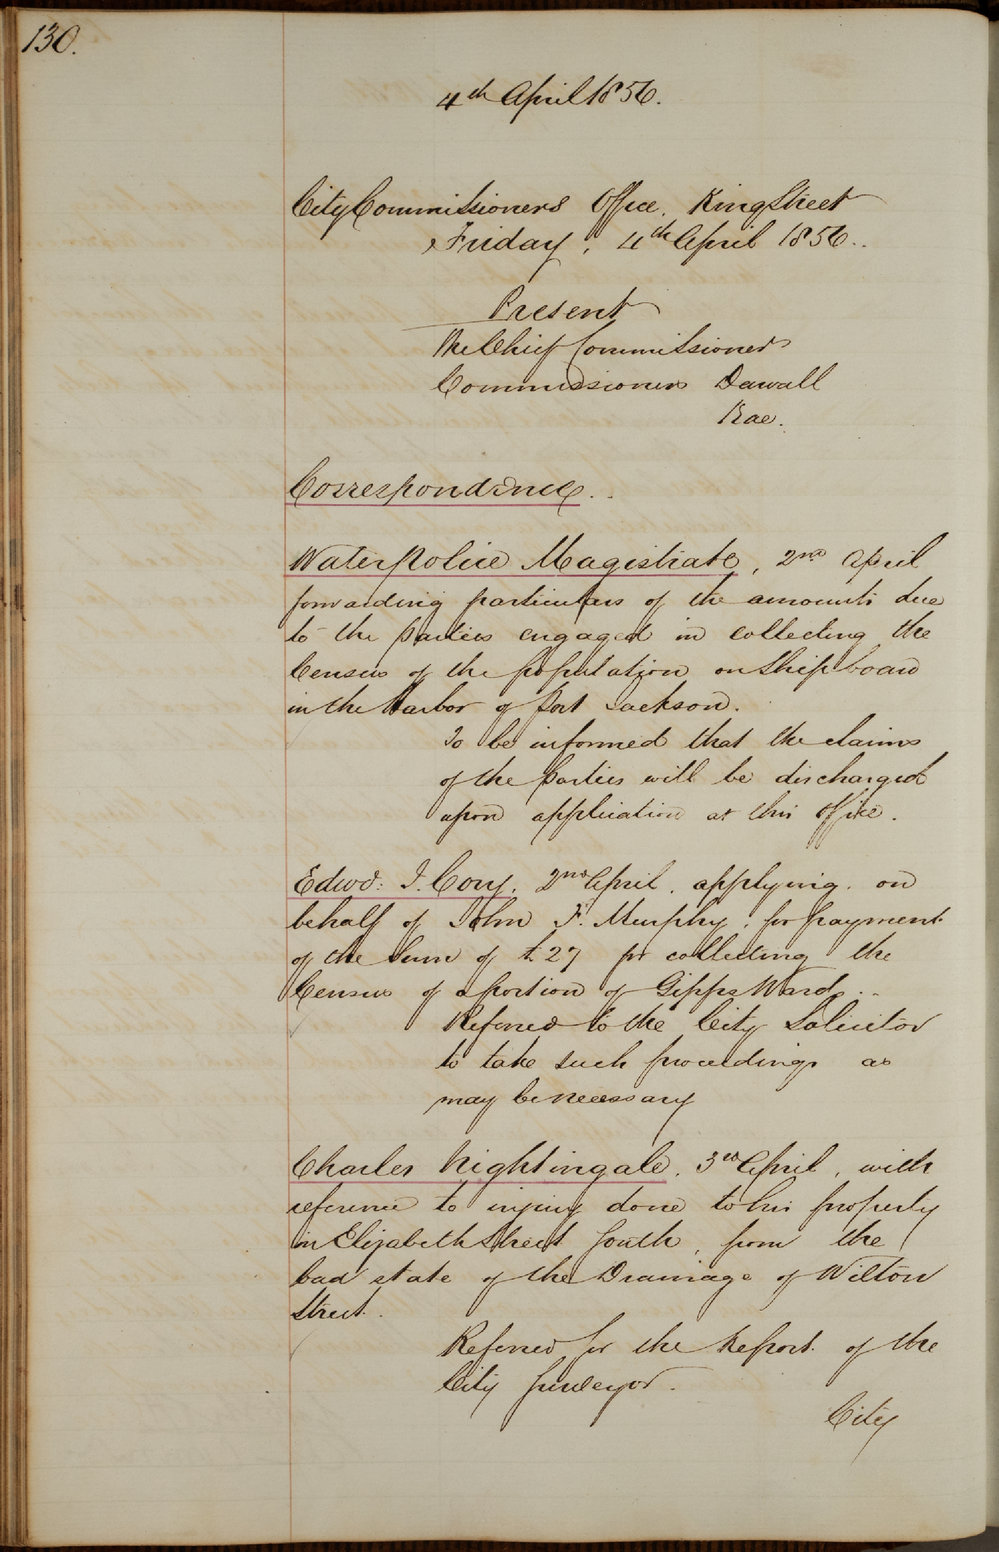 130.
4th April 1856.
City Commissioners Office, King Street
Friday, 4th April 1856.
Present
The Chief Commissioner
Commissioners Darvall
Rae.
Correspondence.
Water Police Magistrate, 2nd April
forwarding particulars of the amounts due
to the parties engaged in collecting the
Census of the population on Ship board
in the Harbor of Port Jackson.
To be informed that the claims
of the parties will be discharged
upon application at this Office.
Edwd: J. Cory, 2nd April, applying on
behalf of John F. Murphy, for payment
of the Sum of £27 for collecting the
Census of a portion of Gipps Ward.
Referred to the City Solicitor
to take such proceedings as
may be necessary
Charles Nightingale, 3rd April, with
reference to injury done to his property
in Elizabeth Street South, from the
bad state of the Drainage of Wilton
Street.
Referred for the Report of the
City Surveyor.
City